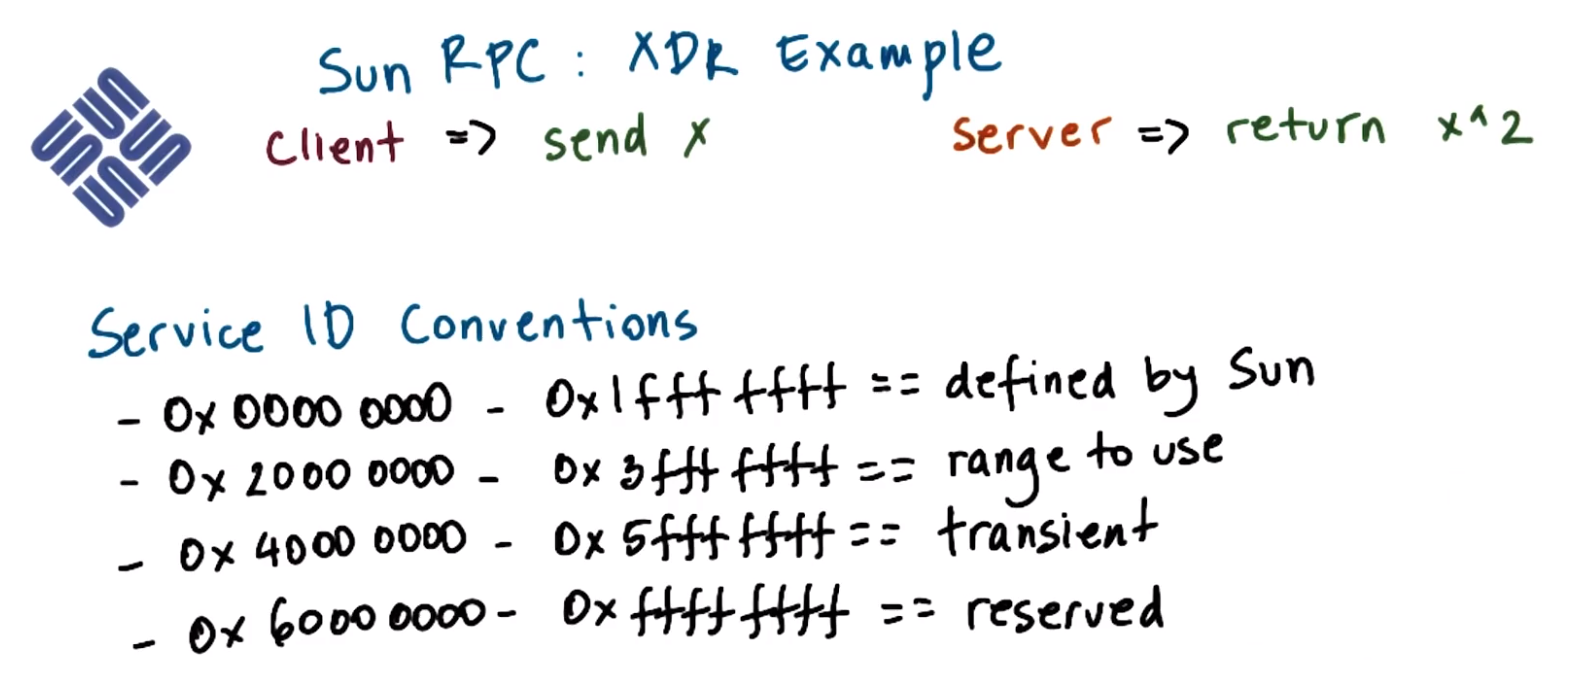 Sun RPC : XDR Example
client => send x server => return x^2
Service ID Conventions
- 0x 0000 0000 - 0x1fff ffff == defined by Sun
- 0x 2000 0000 - 0x 3fff ffff == range to use
- 0x 4000 0000 - 0x 5fff ffff == transient
- 0x 6000 0000 - 0x ffff ffff == reserved